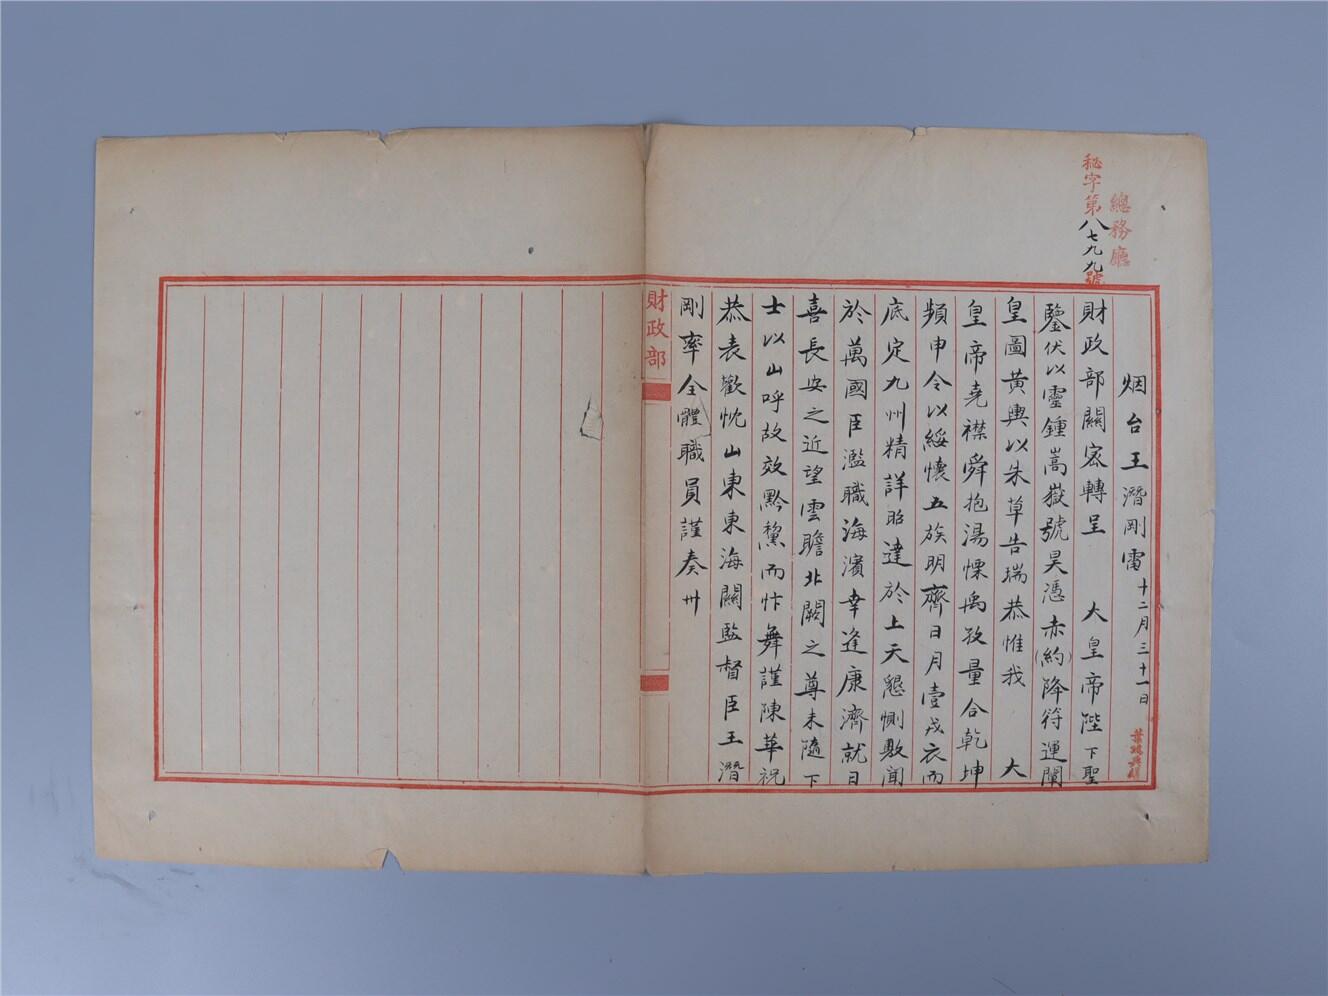 總務廳
秘字第八七九九號
烟台王潛剛電十二月三十一日
財政部關密轉呈 大皇帝陛下聖
鑒伏以靈鍾嵩嶽號昊憑赤(約)降符運闡
皇圖黃輿以朱草告瑞恭惟我 大
皇帝堯襟舜抱湯慄禹孜量合乾坤
頻申令以綏懷五族明齊日月壹戎衣而
底定九州精詳昭達於上天懇惻敷聞
於萬國臣濫職海濱幸逢康濟就日
喜長安之近望雲瞻北闕之尊未隨下
士以山呼故效黔黧而忭舞謹陳華祝
恭表歡忱山東東海關監督臣王潛
剛率全體職員謹奏卅
財政部